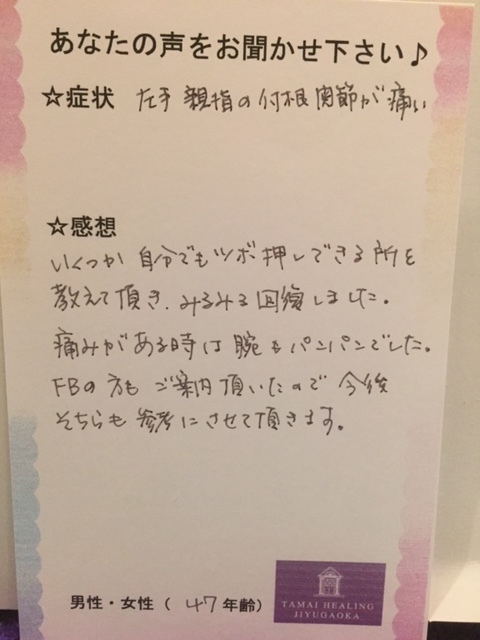 あなたの声をお聞かせ下さい♪
☆症状 左手 親指の付根関節が痛い
☆感想
いくつか 自分でもツボ押しできる所を
教えて頂き、みるみる回復しました。
痛みがある時は 腕もパンパンでした。
FBの方も ご案内頂いたので 今後
そちらも 参考にさせて頂きます。
男性・女性 ( 47 年齢)
TAMAI HEALING
JIYUGAOKA